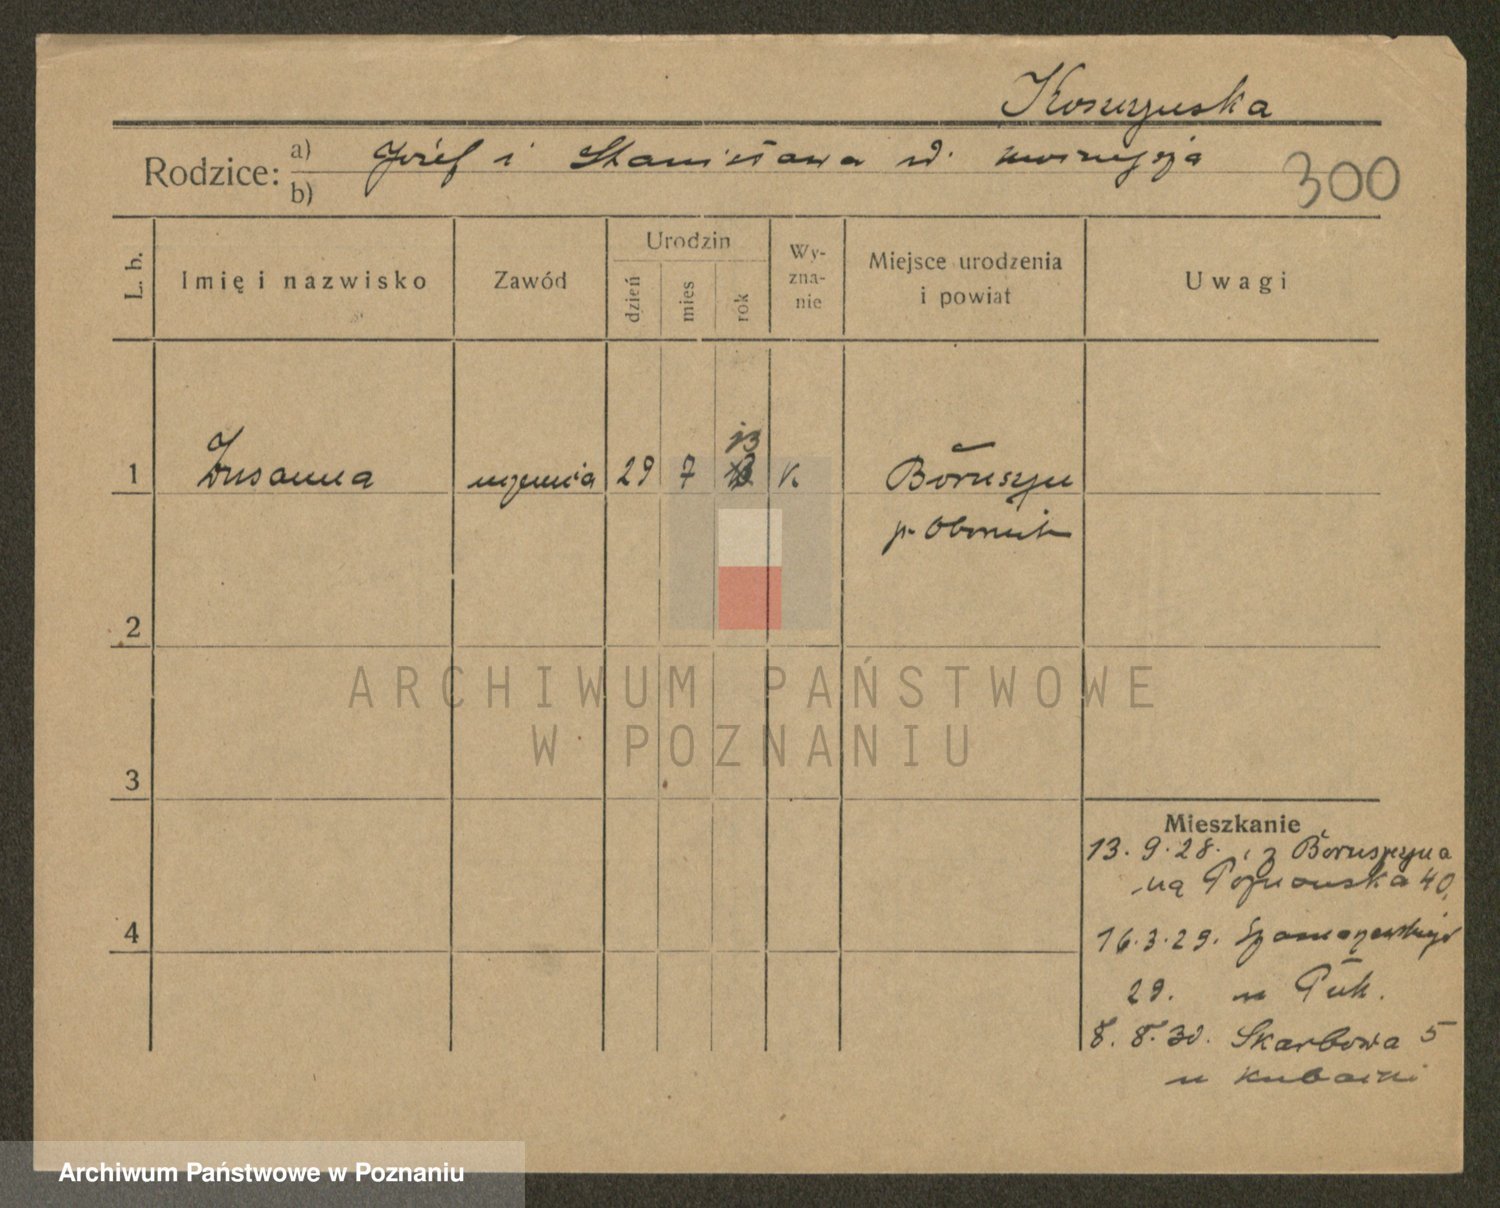 Koszczyńska
Rodzice: a) Józef i Stanisława
b)
300
L. b.
Imię i nazwisko
Zawód
Urodzin
dzień
mies
rok
Wy-
zna-
nie
Miejsce urodzenia
i powiat
Uwagi
13
1 Zusanna uczennica 29 7 K Boruszyn
p. Obornik
2
ARCHIWUM PAŃSTWOWE
W POZNANIU
3
Mieszkanie
13.9.28. z Boruszyna
na Poznańska 40.
4
16.3.29. Szamarzewskiego
29. u
8.8.30. Skarbowa 5
u
Archiwum Państwowe w Poznaniu